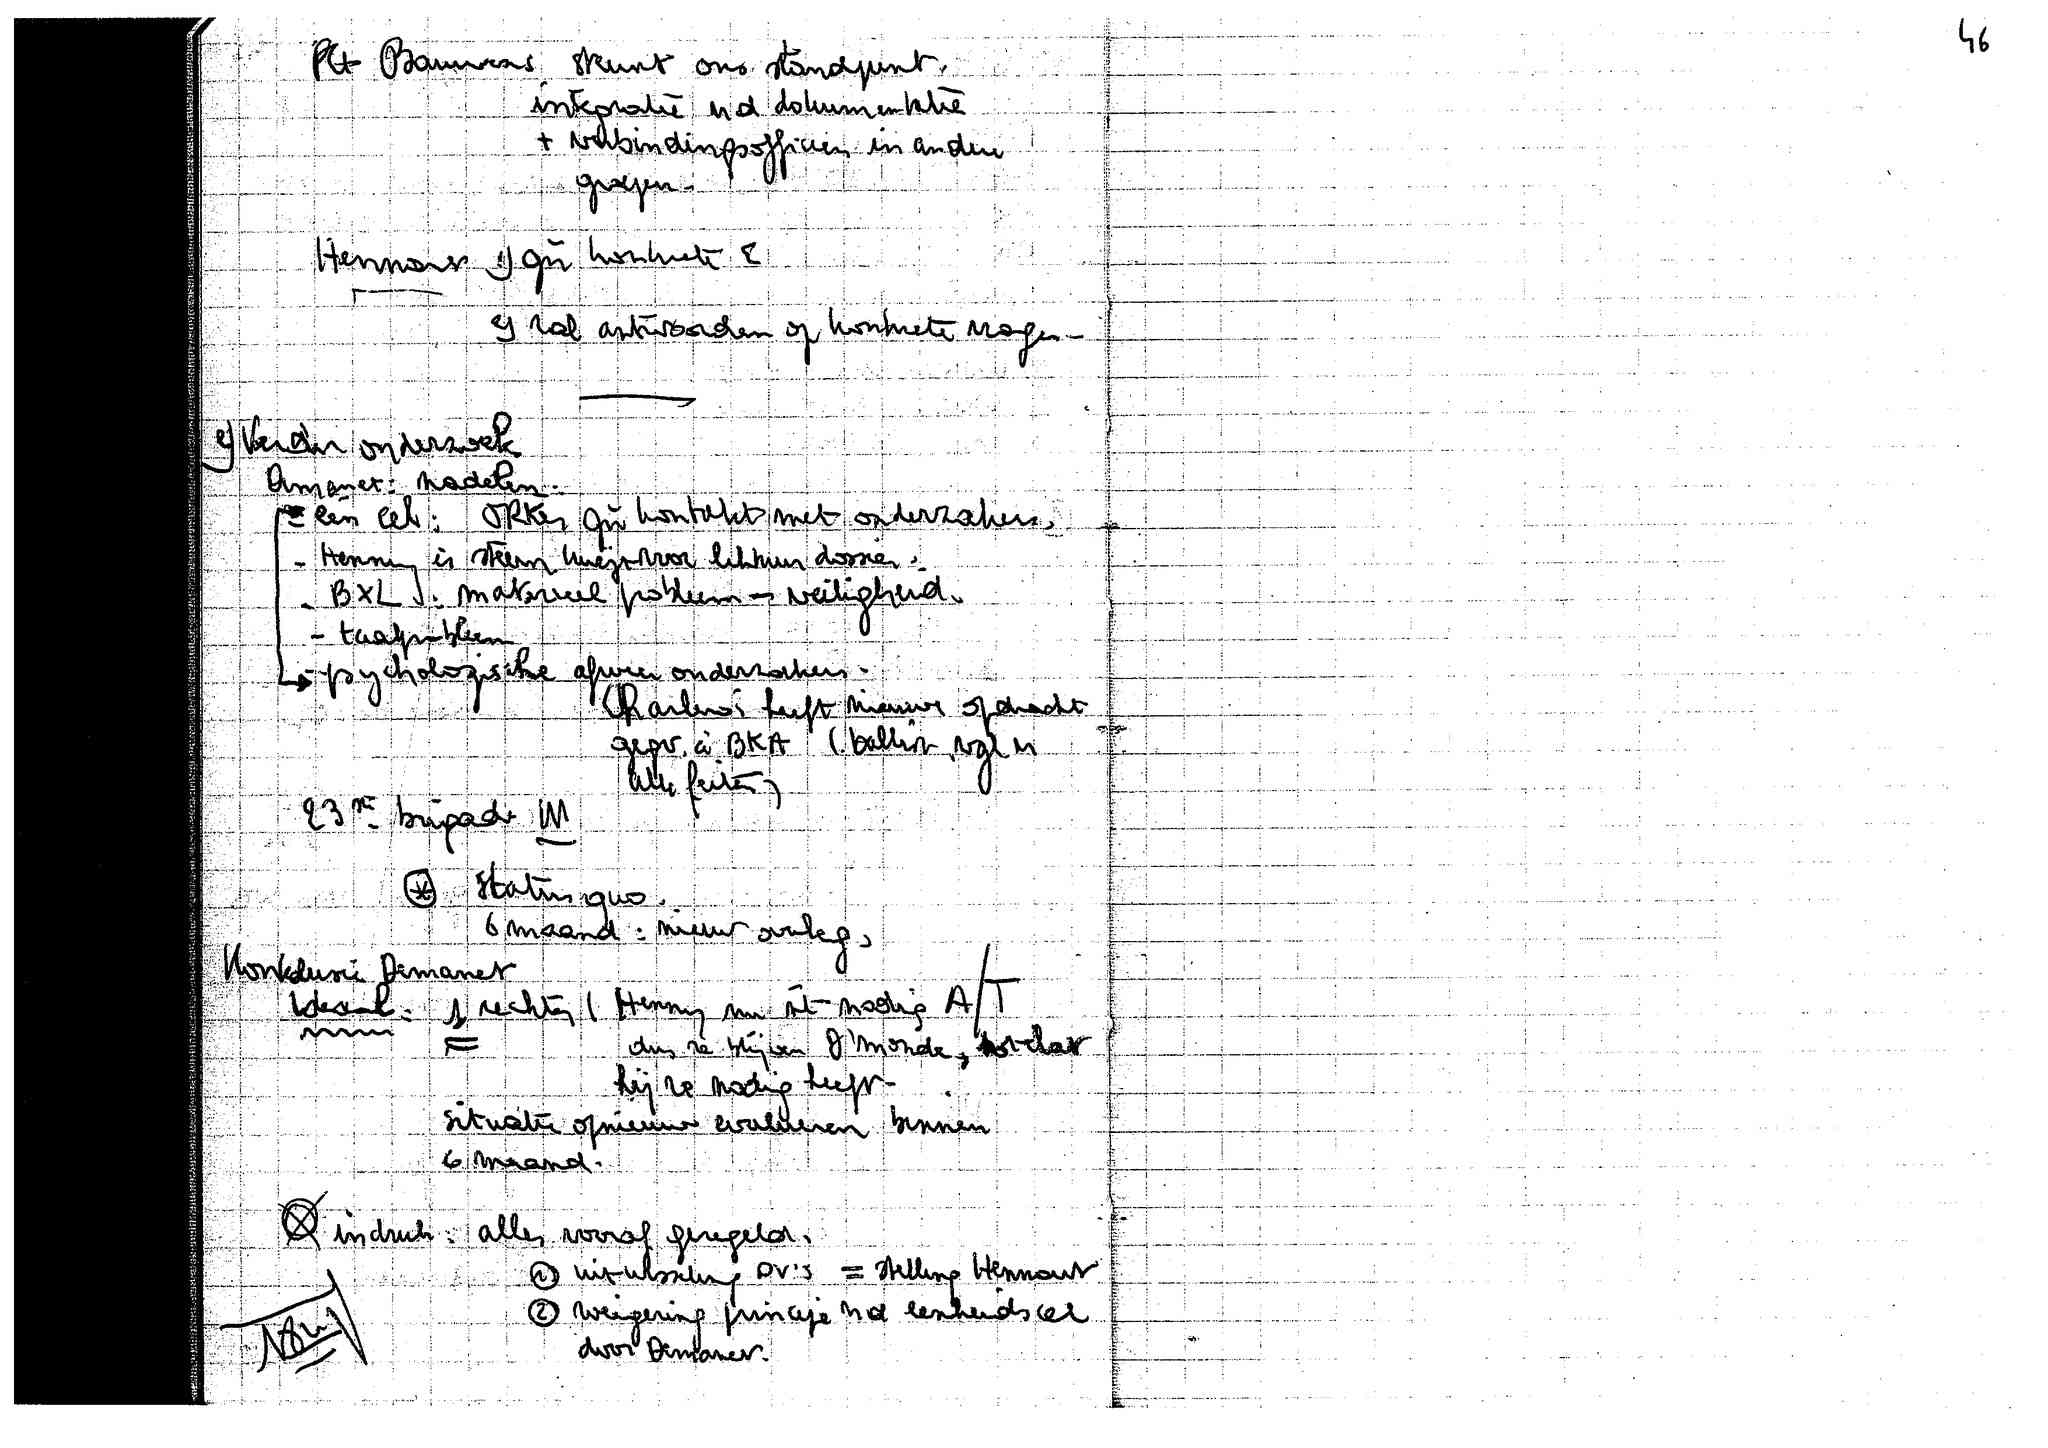 46
Bauwens steunt ons standpunt.
integratie vd dokumentatie
+ verbindingsofficieren in andere
groepen.
Hennart 1) gn konkrete
2) zal antwoorden op konkrete vragen.
2) Verder onderzoek
Demanet: nadelen:
- één cel: gn kontakt met onderzoekers.
- Henny is steeds voor lekken dossier.
- BXL: materieel probleem - veiligheid.
- taalprobleem
- psychologische onderzoekers.
Charleroi heeft nieuwe opdracht
gegev. à BKA (ballist. vgl v
alle feiten)
23ste brigade
* Status quo.
6 maand: nieuw overleg,
Konklusie Demanet
Ideaal: 1 rechter ( Henny nu nt nodig A/T
dus te blijven D'Monde, totdat
hij ze nodig heeft-
Situatie opnieuw evalueren binnen
6 maand.
indruk: alles vooraf geregeld.
① uitwisseling PV's = stelling Hennart
② weigering principe vd eenheidscel
door Demanet.